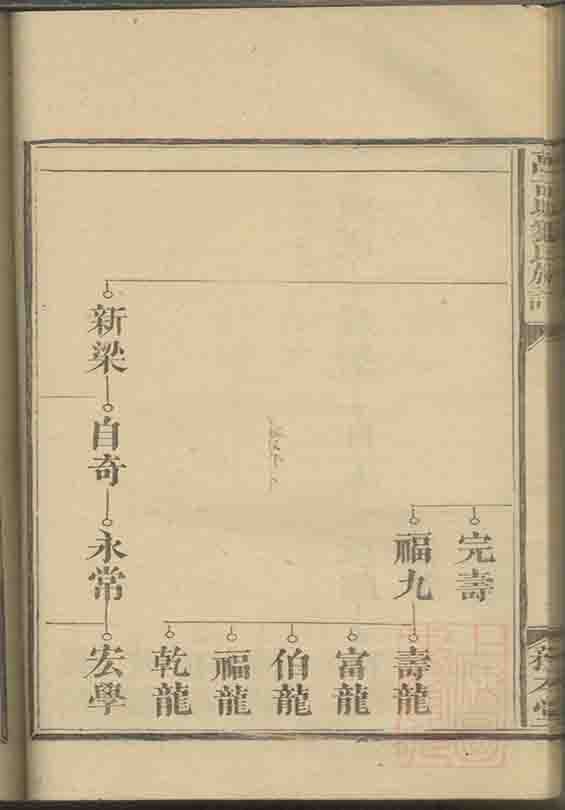 完壽
福九
壽龍
富龍
伯龍
福龍
乾龍
新梁
自奇
永常
宏學